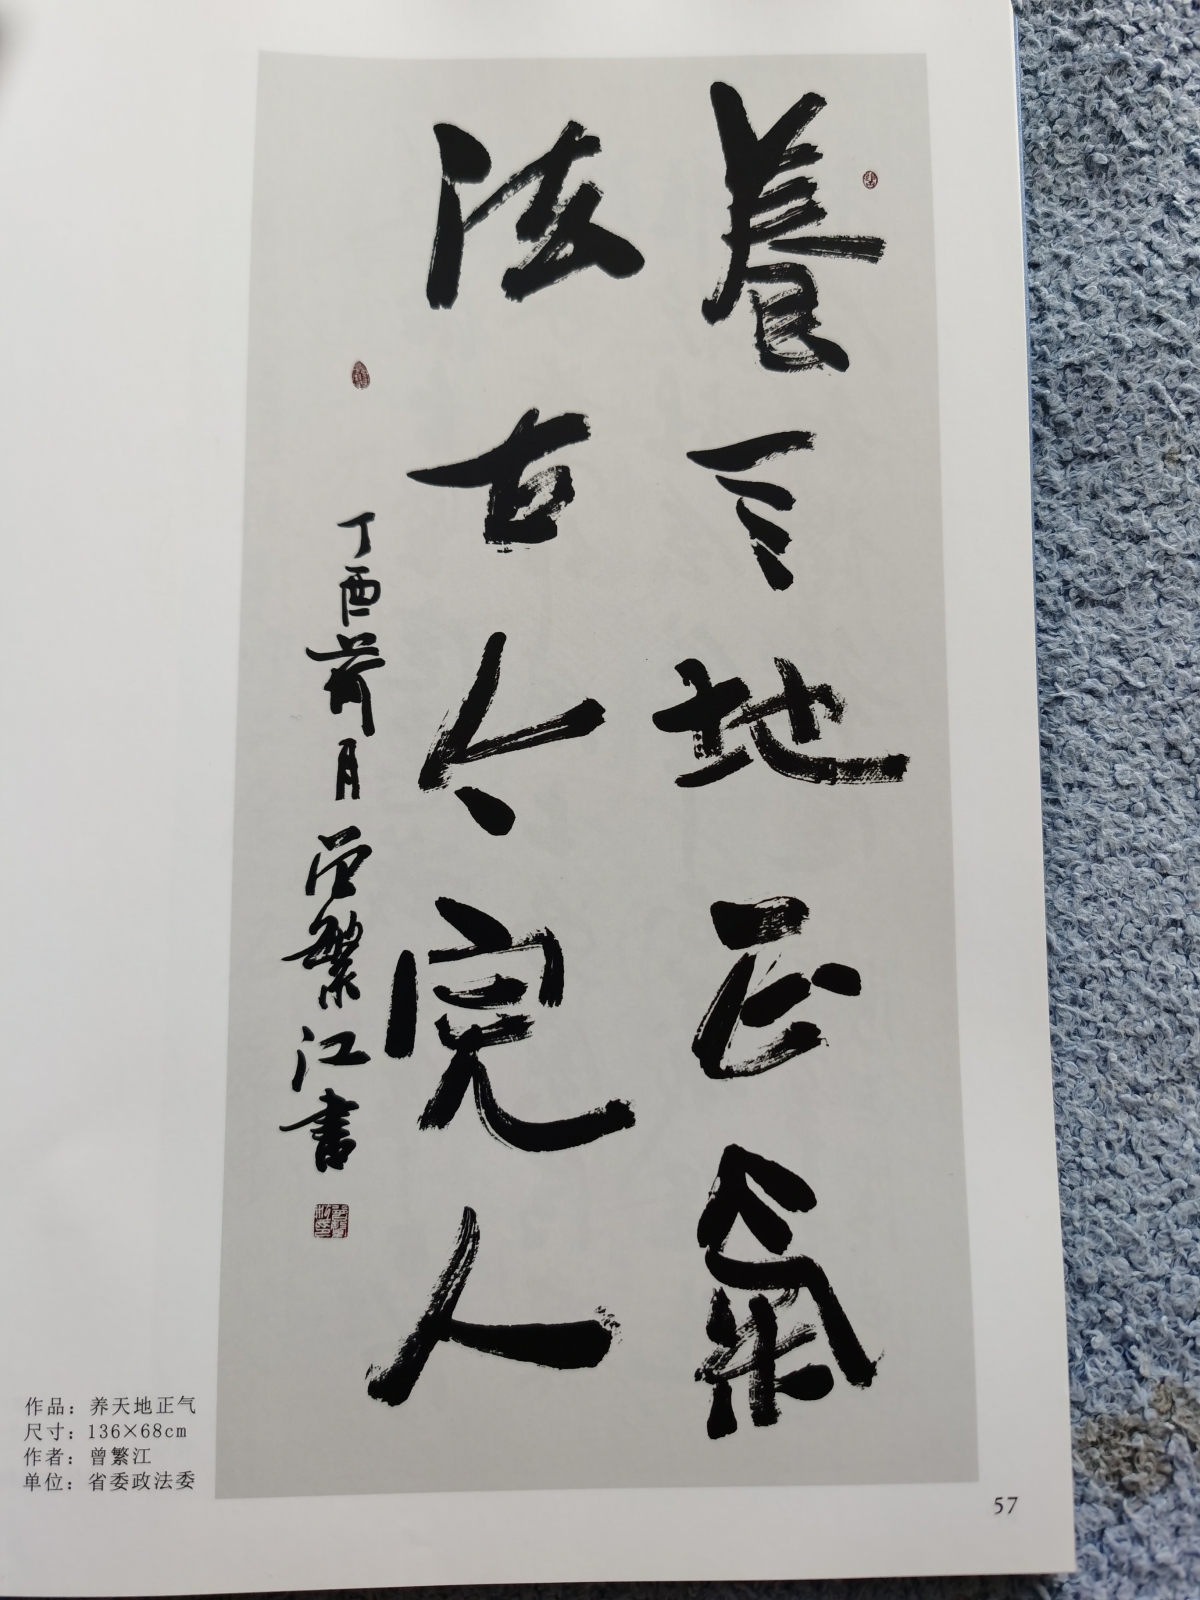 養天地正氣
法古今完人
丁酉荷月曾繁江書
作品：养天地正气
尺寸：136×68cm
作者：曾繁江
单位：省委政法委
57